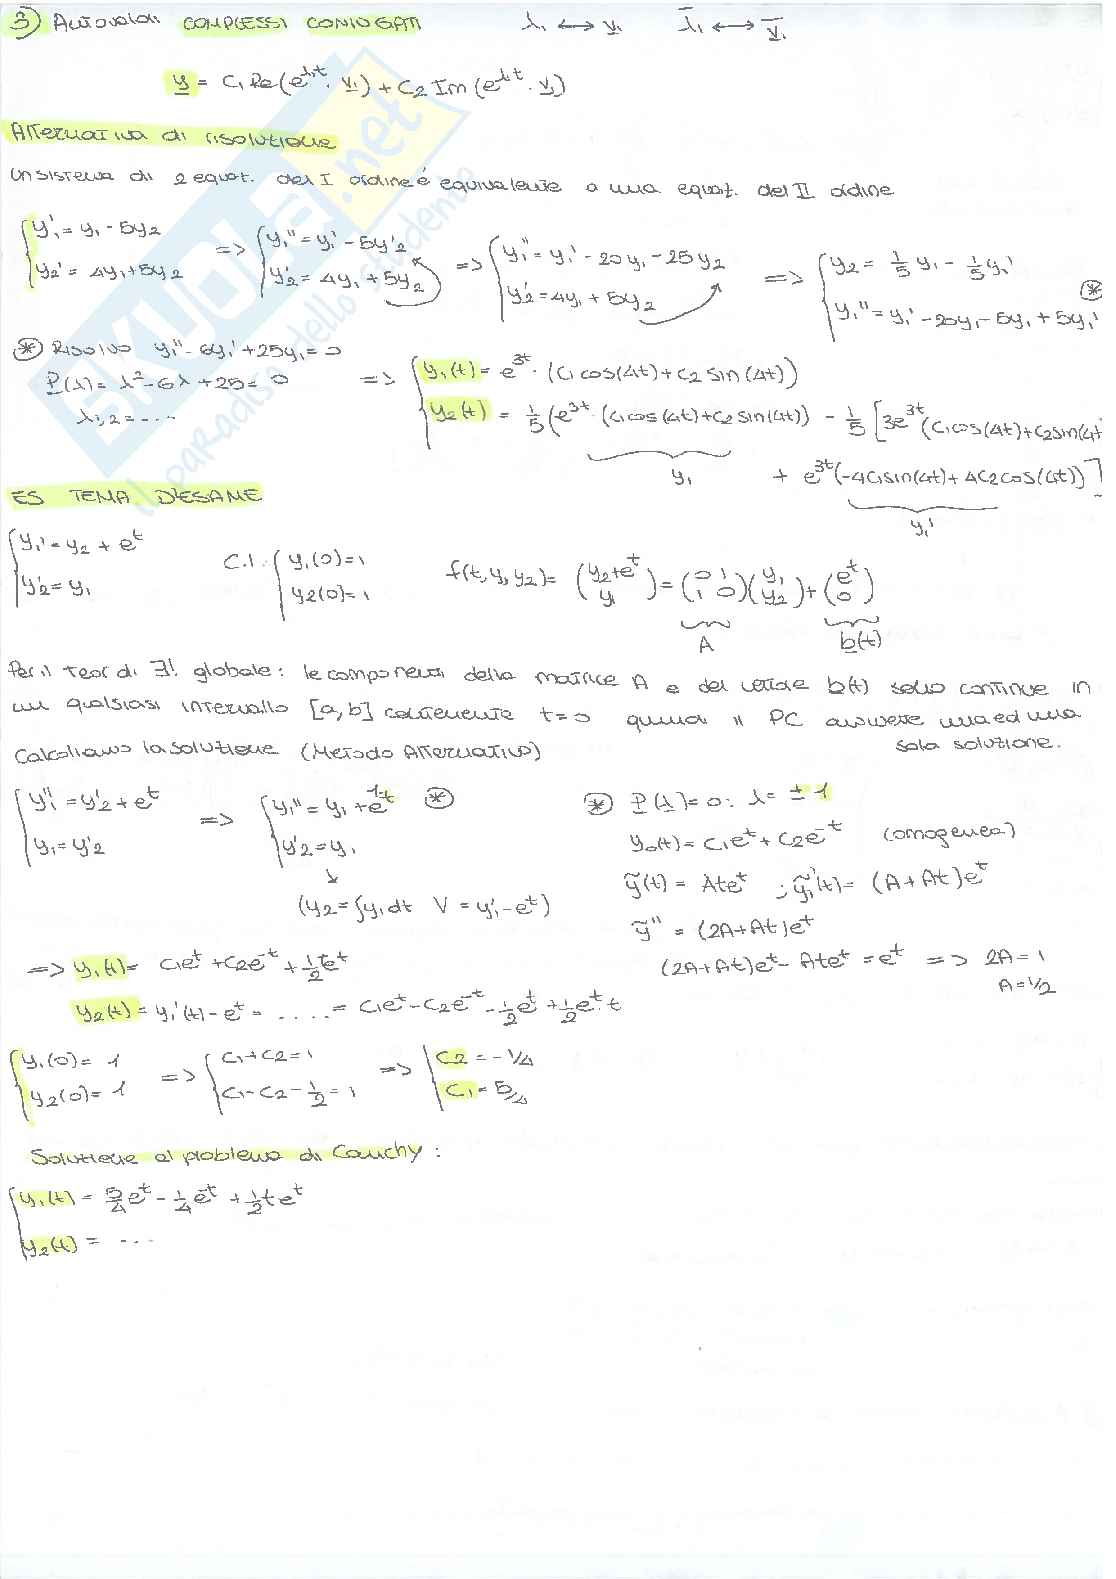 3) Autovalori COMPLESSI CONIUGATI λ₁ ⟷ v₁ λ̄₁ ⟷ v̄₁
y = C₁ Re(e^{λ₁t} · v₁) + C₂ Im(e^{λ₁t} · v₁)
Alternativa di risolutione
un sistema di 2 equaz. del I ordine è equivalente a una equaz. del II ordine
{ y₁' = y₁ - 5y₂ => { y₁'' = y₁' - 5y₂' => { y₁'' = y₁' - 20y₁ - 25y₂ => { y₂ = 1/5 y₁ - 1/5 y₁'
y₂' = 4y₁ + 5y₂ y₂' = 4y₁ + 5y₂ y₂' = 4y₁ + 5y₂ y₁'' = y₁' - 20y₁ - 5y₁ + 5y₁' (*)
(*) Risolvo y₁'' - 6y₁' + 25y₁ = 0
P(λ) = λ² - 6λ + 25 = 0 => { y₁(t) = e^{3t} · (C₁cos(4t) + C₂ sin(4t))
λ₁,₂ = .... y₂(t) = 1/5 (e^{3t} · (C₁cos(4t) + C₂ sin(4t)) - 1/5 [3e^{3t} (C₁cos(4t) + C₂sin(4t
y₁ + e^{3t}(-4C₁sin(4t) + 4C₂cos(4t))]
y₁'
ES TEMA D'ESAME
{ y₁' = y₂ + e^t C.I. { y₁(0) = 1 f(t, y₁, y₂) = (y₂+e^t / y₁) = (0 1 / 1 0)(y₁ / y₂) + (e^t / 0)
y₂' = y₁ y₂(0) = 1 A b(t)
Per il teor di ∃! globale: le componenti della matrice A e del vettore b(t) sono continue in
un qualsiasi intervallo [a, b] contenente t=0 quindi il PC ammette una ed una
sola soluzione.
Calcoliamo la solutione (Metodo Alternativo)
{ y₁'' = y₂' + e^t => { y₁'' = y₁ + e^{1·t} (*)
y₁ = y₂' y₂' = y₁
(y₂ = ∫y₁dt V = y₁' - e^t)
(*) P(λ) = 0 : λ = ± 1
y₀(t) = C₁e^t + C₂e^{-t} (omogenea)
ỹ(t) = Ate^t ; ỹ₁'(t) = (A + At)e^t
ỹ'' = (2A + At)e^t
(2A + At)e^t - Ate^t = e^t => 2A = 1
A = 1/2
=> y₁(t) = C₁e^t + C₂e^{-t} + 1/2 te^t
y₂(t) = y₁'(t) - e^t = ..... = C₁e^t - C₂e^{-t} - 1/2 e^t + 1/2 e^t · t
{ y₁(0) = 1 => { C₁ + C₂ = 1 => { C₂ = -1/4
y₂(0) = 1 C₁ - C₂ - 1/2 = 1 C₁ = 5/4
Solutione al problema di Cauchy :
{ y₁(t) = 5/4 e^t - 1/4 e^{-t} + 1/2 te^t
y₂(t) = ....
SKUOLA.net
il paradiso dello studente